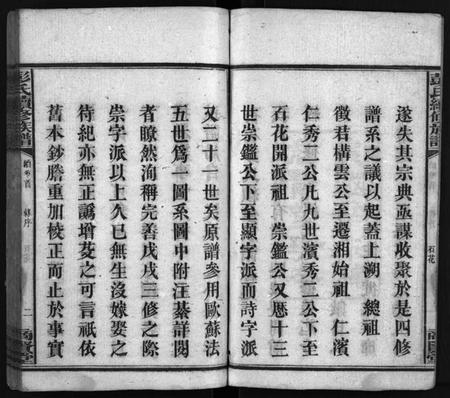 彭氏續修族譜
石花
遂失其宗典亟謀收聚於是四修
譜系之議以起蓋上溯 總祖
徵君構雲公至遷湘始祖 仁濱
仁秀二公凡九世濱秀二公下至
石花開派祖 崇鑑公又恩十三
世崇鑑公下至顯字派而詩字派
又二十一世矣原譜參用歐蘇法
五世爲一圖系圖中附注綦詳閱
者瞭然洵稱完善戊戌三修之際
崇字派以上久已無生沒嫁娶之
待紀亦無正譌增芟之可言祇依
舊本鈔謄重加校正而止於事實
彭氏續修族譜
卷首
二